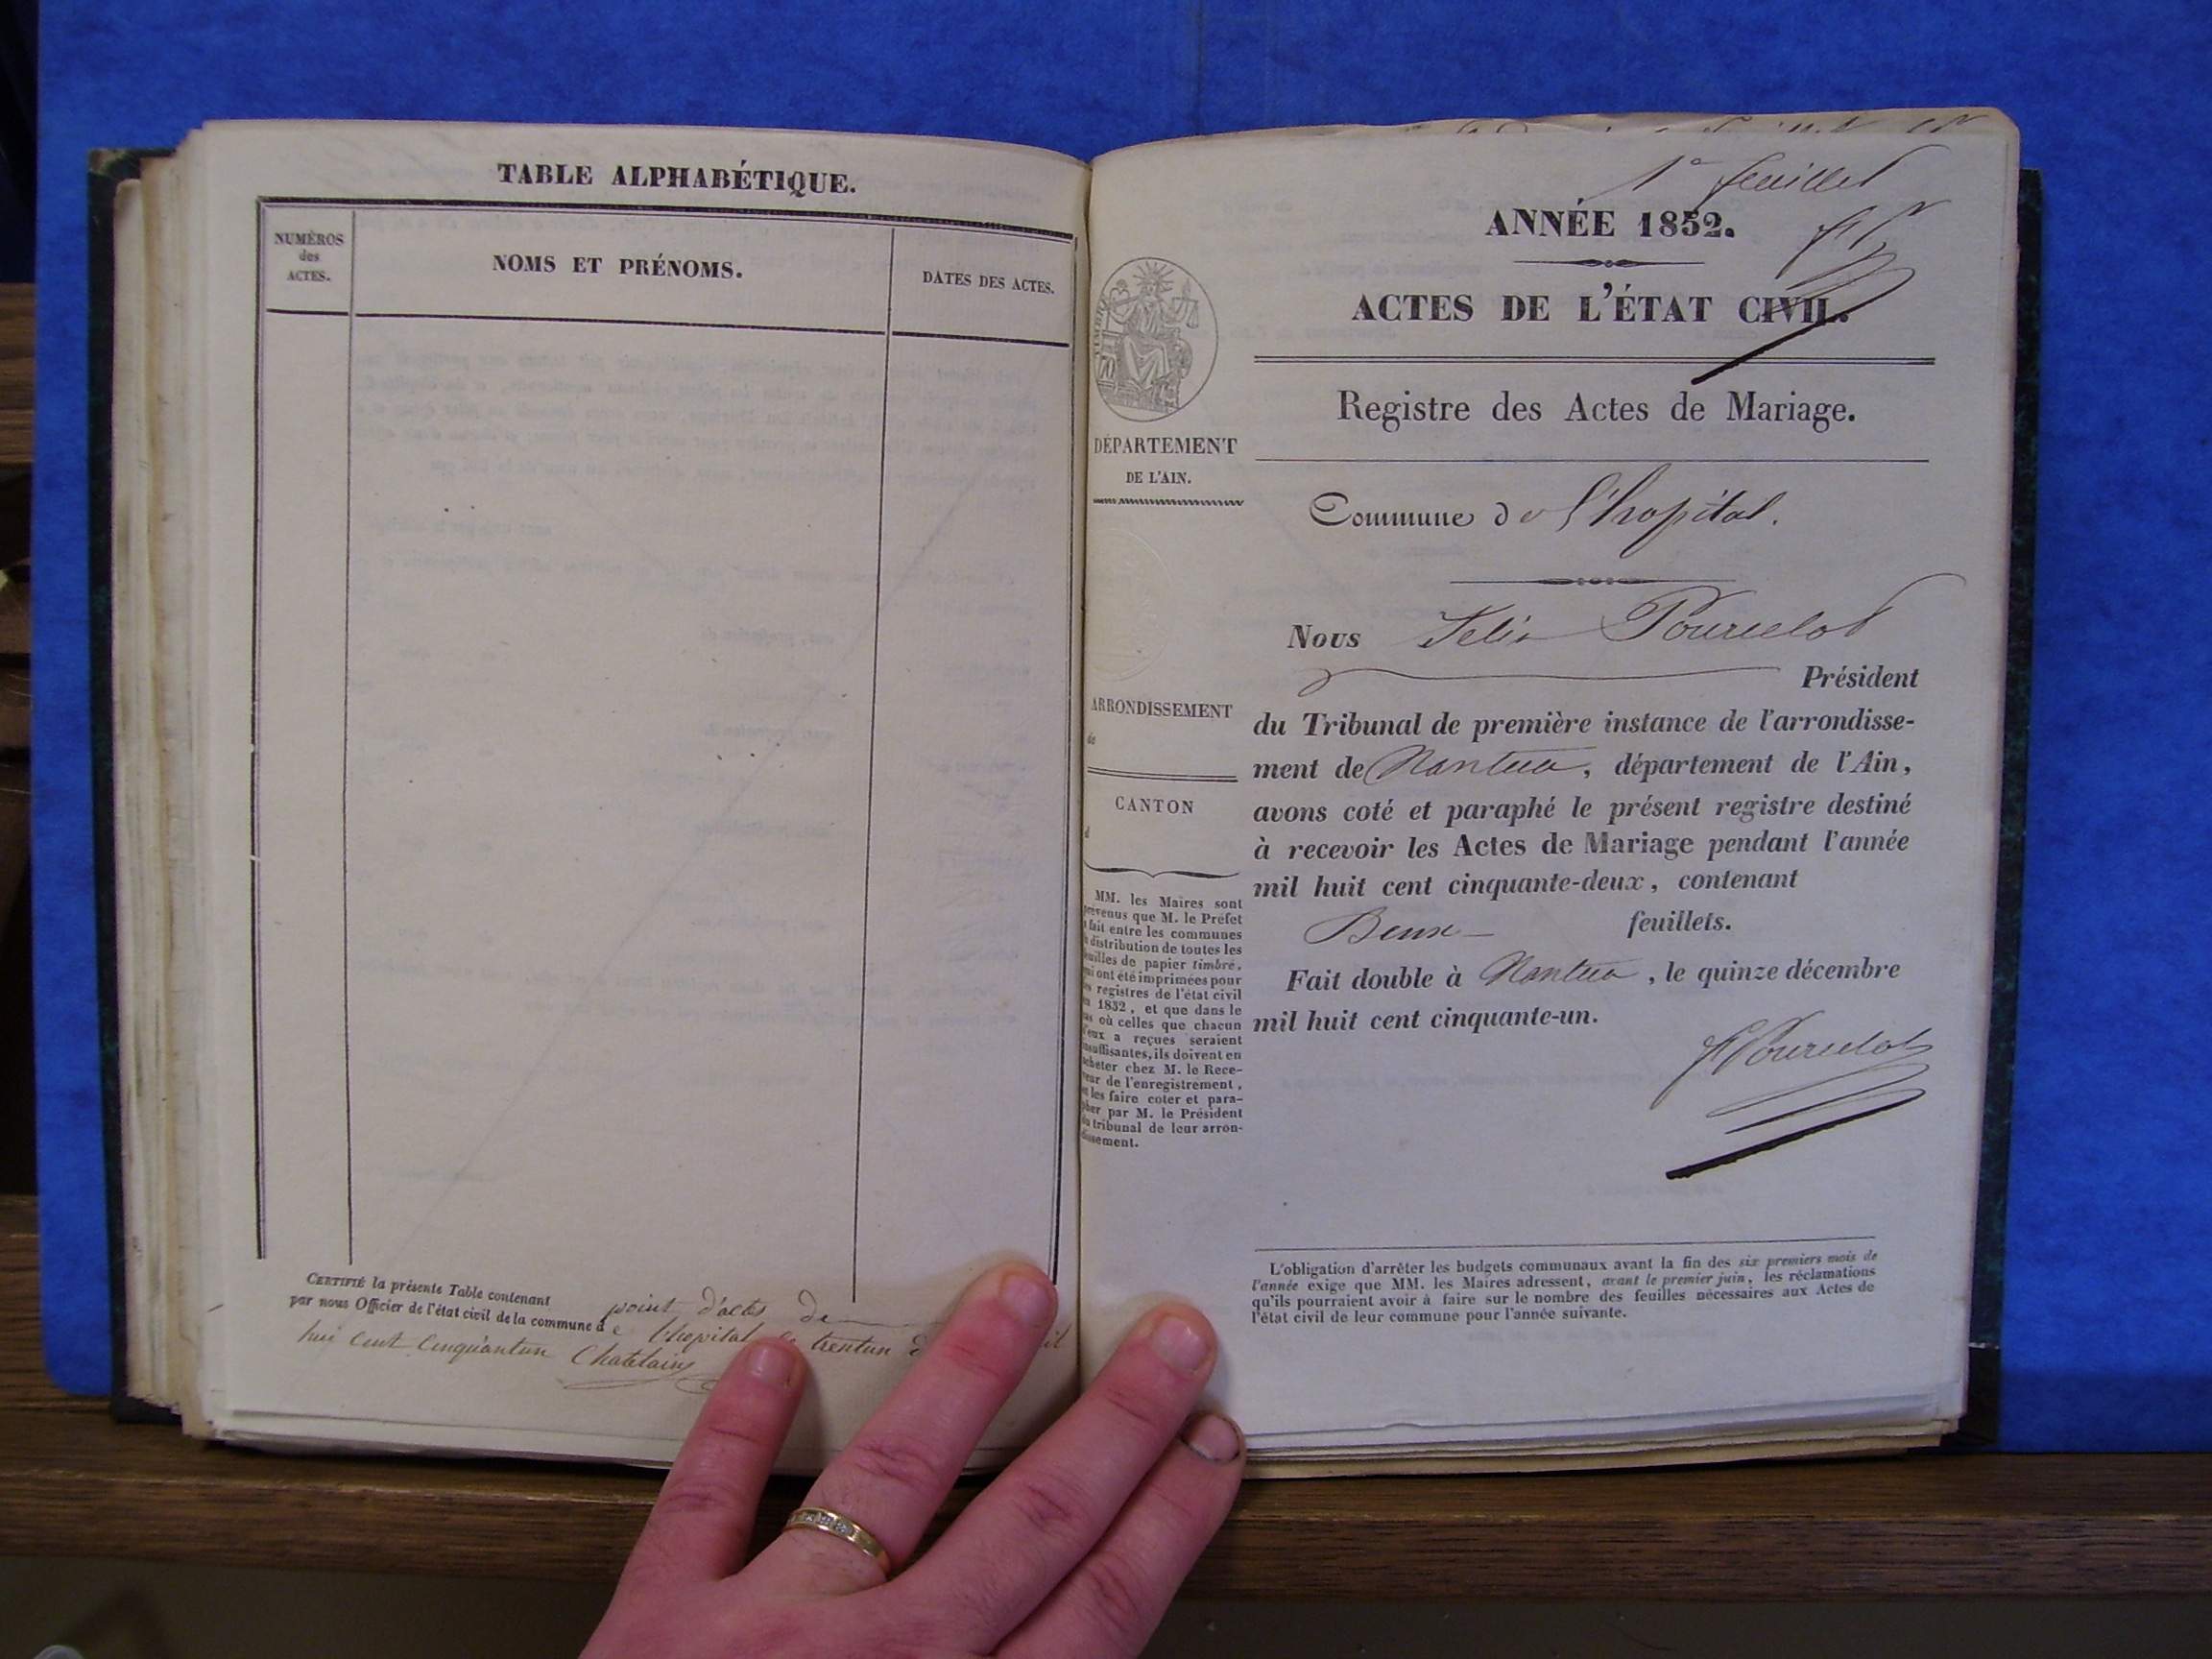 TABLE ALPHABÉTIQUE.
NUMÉROS
des
ACTES.
NOMS ET PRÉNOMS.
DATES DES ACTES.
CERTIFIÉ la présente Table contenant point d'actes de
par nous Officier de l'état civil de la commune de l'hopital le trentun
huit cent cinquantun Chatelain
1er feuillet
ANNÉE 1852.
ACTES DE L'ÉTAT CIVIL.
Registre des Actes de Mariage.
TIMBRE
DÉPARTEMENT
DE L'AIN.
Commune de l'hopital.
Nous Felix Pourcelot
Président
du Tribunal de première instance de l'arrondisse-
ment de Nantua, département de l'Ain,
avons coté et paraphé le présent registre destiné
à recevoir les Actes de Mariage pendant l'année
mil huit cent cinquante-deux, contenant
Deux feuillets.
Fait double à Nantua, le quinze décembre
mil huit cent cinquante-un.
F Pourcelot
ARRONDISSEMENT
de
CANTON
d
MM. les Maires sont
prévenus que M. le Préfet
a fait entre les communes
la distribution de toutes les
feuilles de papier timbré,
qui ont été imprimées pour
les registres de l'état civil
en 1852, et que dans le
cas où celles que chacun
d'eux a reçues seraient
insuffisantes, ils doivent en
acheter chez M. le Rece-
veur de l'enregistrement,
et les faire coter et para-
pher par M. le Président
du tribunal de leur arron-
dissement.
L'obligation d'arrêter les budgets communaux avant la fin des six premiers mois de
l'année exige que MM. les Maires adressent, avant le premier juin, les réclamations
qu'ils pourraient avoir à faire sur le nombre des feuilles nécessaires aux Actes de
l'état civil de leur commune pour l'année suivante.